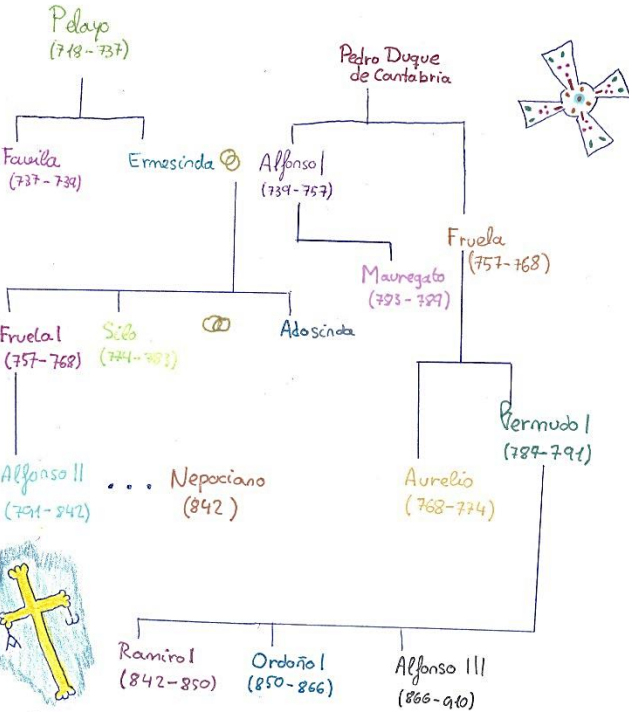 Pelayo
(718-737)
Pedro Duque
de Cantabria
Favila
(737-739)
Ermesinda
Alfonso I
(739-757)
Fruela
(757-768)
Mauregato
(783-789)
Fruela I
(757-768)
Silo
(774-783)
Adosinda
Bermudo I
(789-791)
Alfonso II
(791-842)
...
Nepociano
(842)
Aurelio
(768-774)
Ramiro I
(842-850)
Ordoño I
(850-866)
Alfonso III
(866-910)